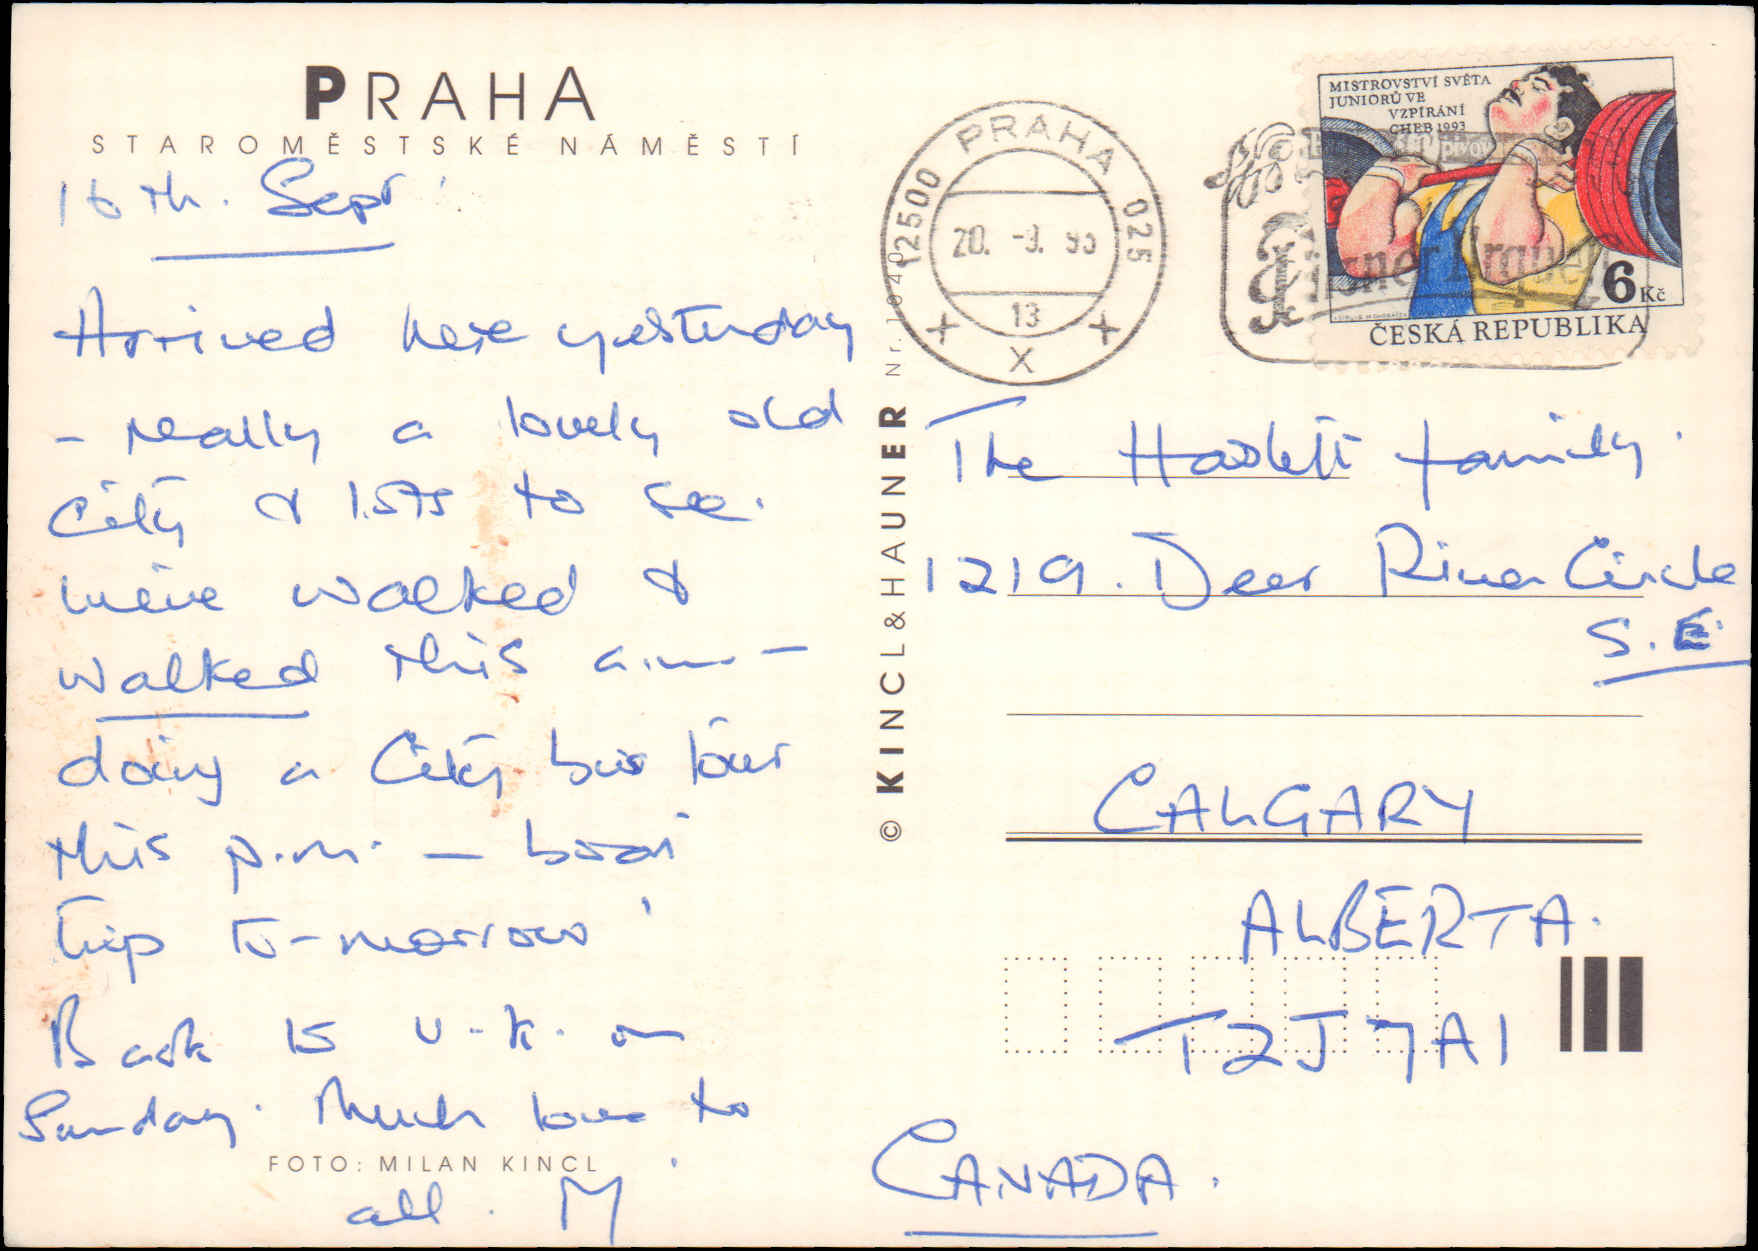 PRAHA
STAROMĚSTSKÉ NÁMĚSTÍ
16th. Sept
Arrived here yesterday
- really a lovely old
City & lots to see.
We've walked &
walked this a.m. -
doing a City bus tour
this p.m. - boat
trip to-morrow!
Back to U.K. on
Sunday. Much love to
all. M
FOTO: MILAN KINCL
© KINCL & HAUNER Nr. 1040
12500 PRAHA 025
20. -9. 95
13
X
pivo
Pilsner Urquell
MISTROVSTVÍ SVĚTA
JUNIORŮ VE
VZPÍRÁNÍ
CHEB 1993
6 Kč
ČESKÁ REPUBLIKA
The Haslett family.
1219. Deer River Circle
S.E.
CALGARY
ALBERTA.
T2J 7A1
CANADA.